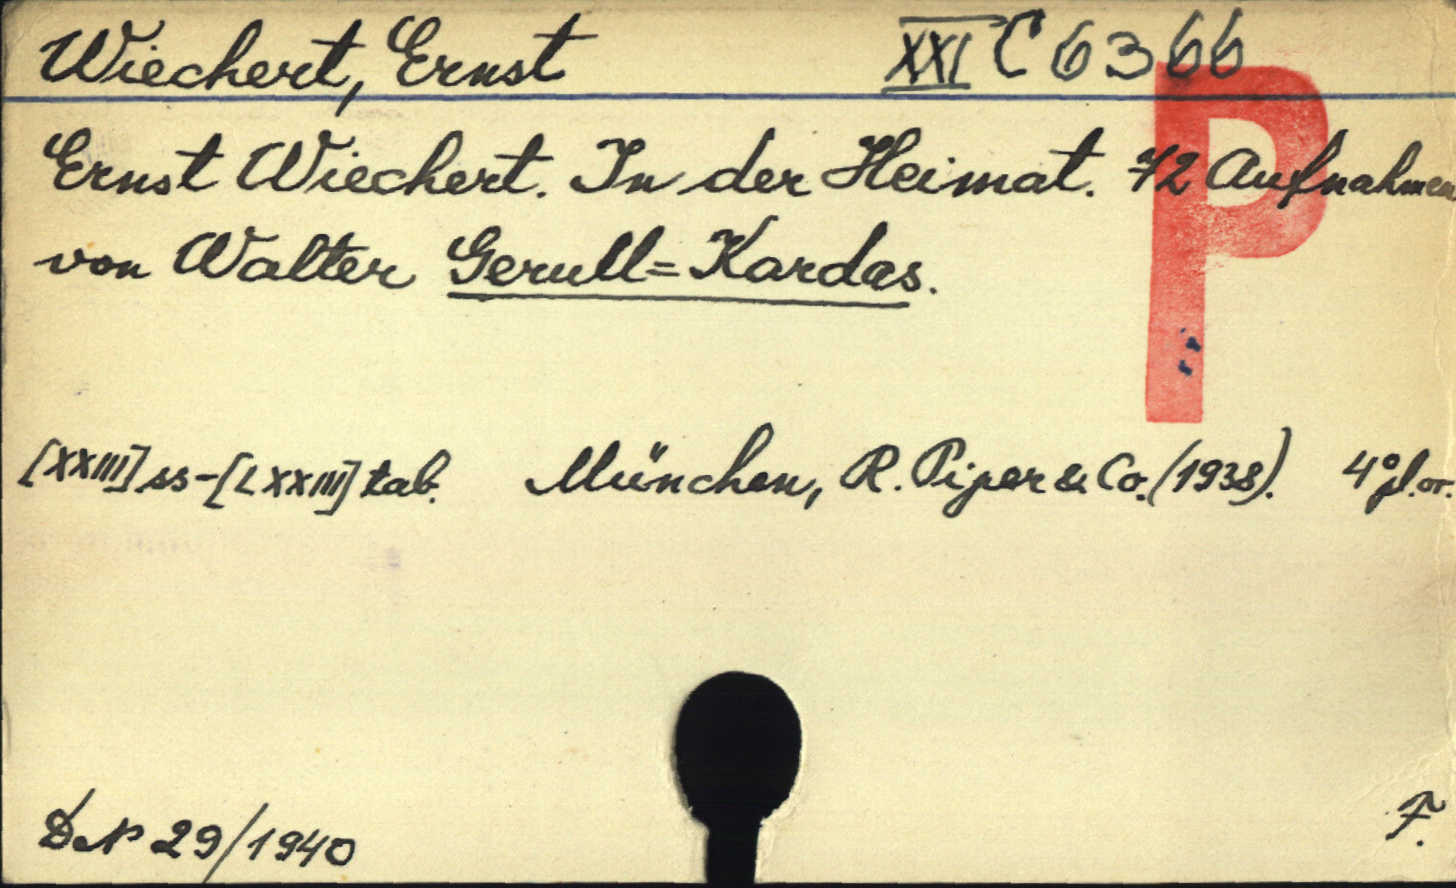 Wiechert, Ernst XXI C 6366
P
Ernst Wiechert. In der Heimat. 72 Aufnahmen
von Walter Gerull=Kardas.
[XXIII] ss-[LXXIII] tab. München, R. Piper & Co. (1938). 4° pl. or.
29/1940
F.